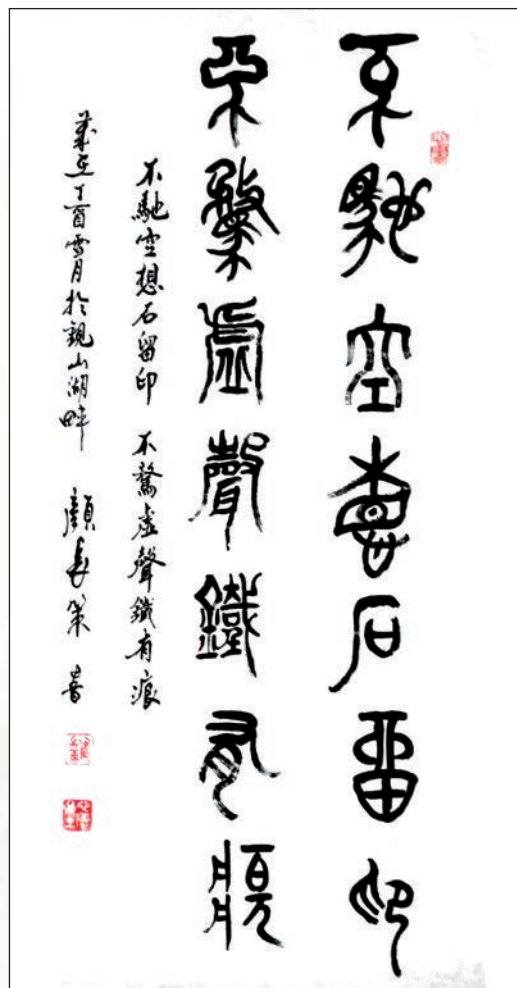 不馳空想石留印
不騖虛聲鐵有痕
不馳空想石留印 不騖虛聲鐵有痕
歲在丁酉雪月於觀山湖畔 書